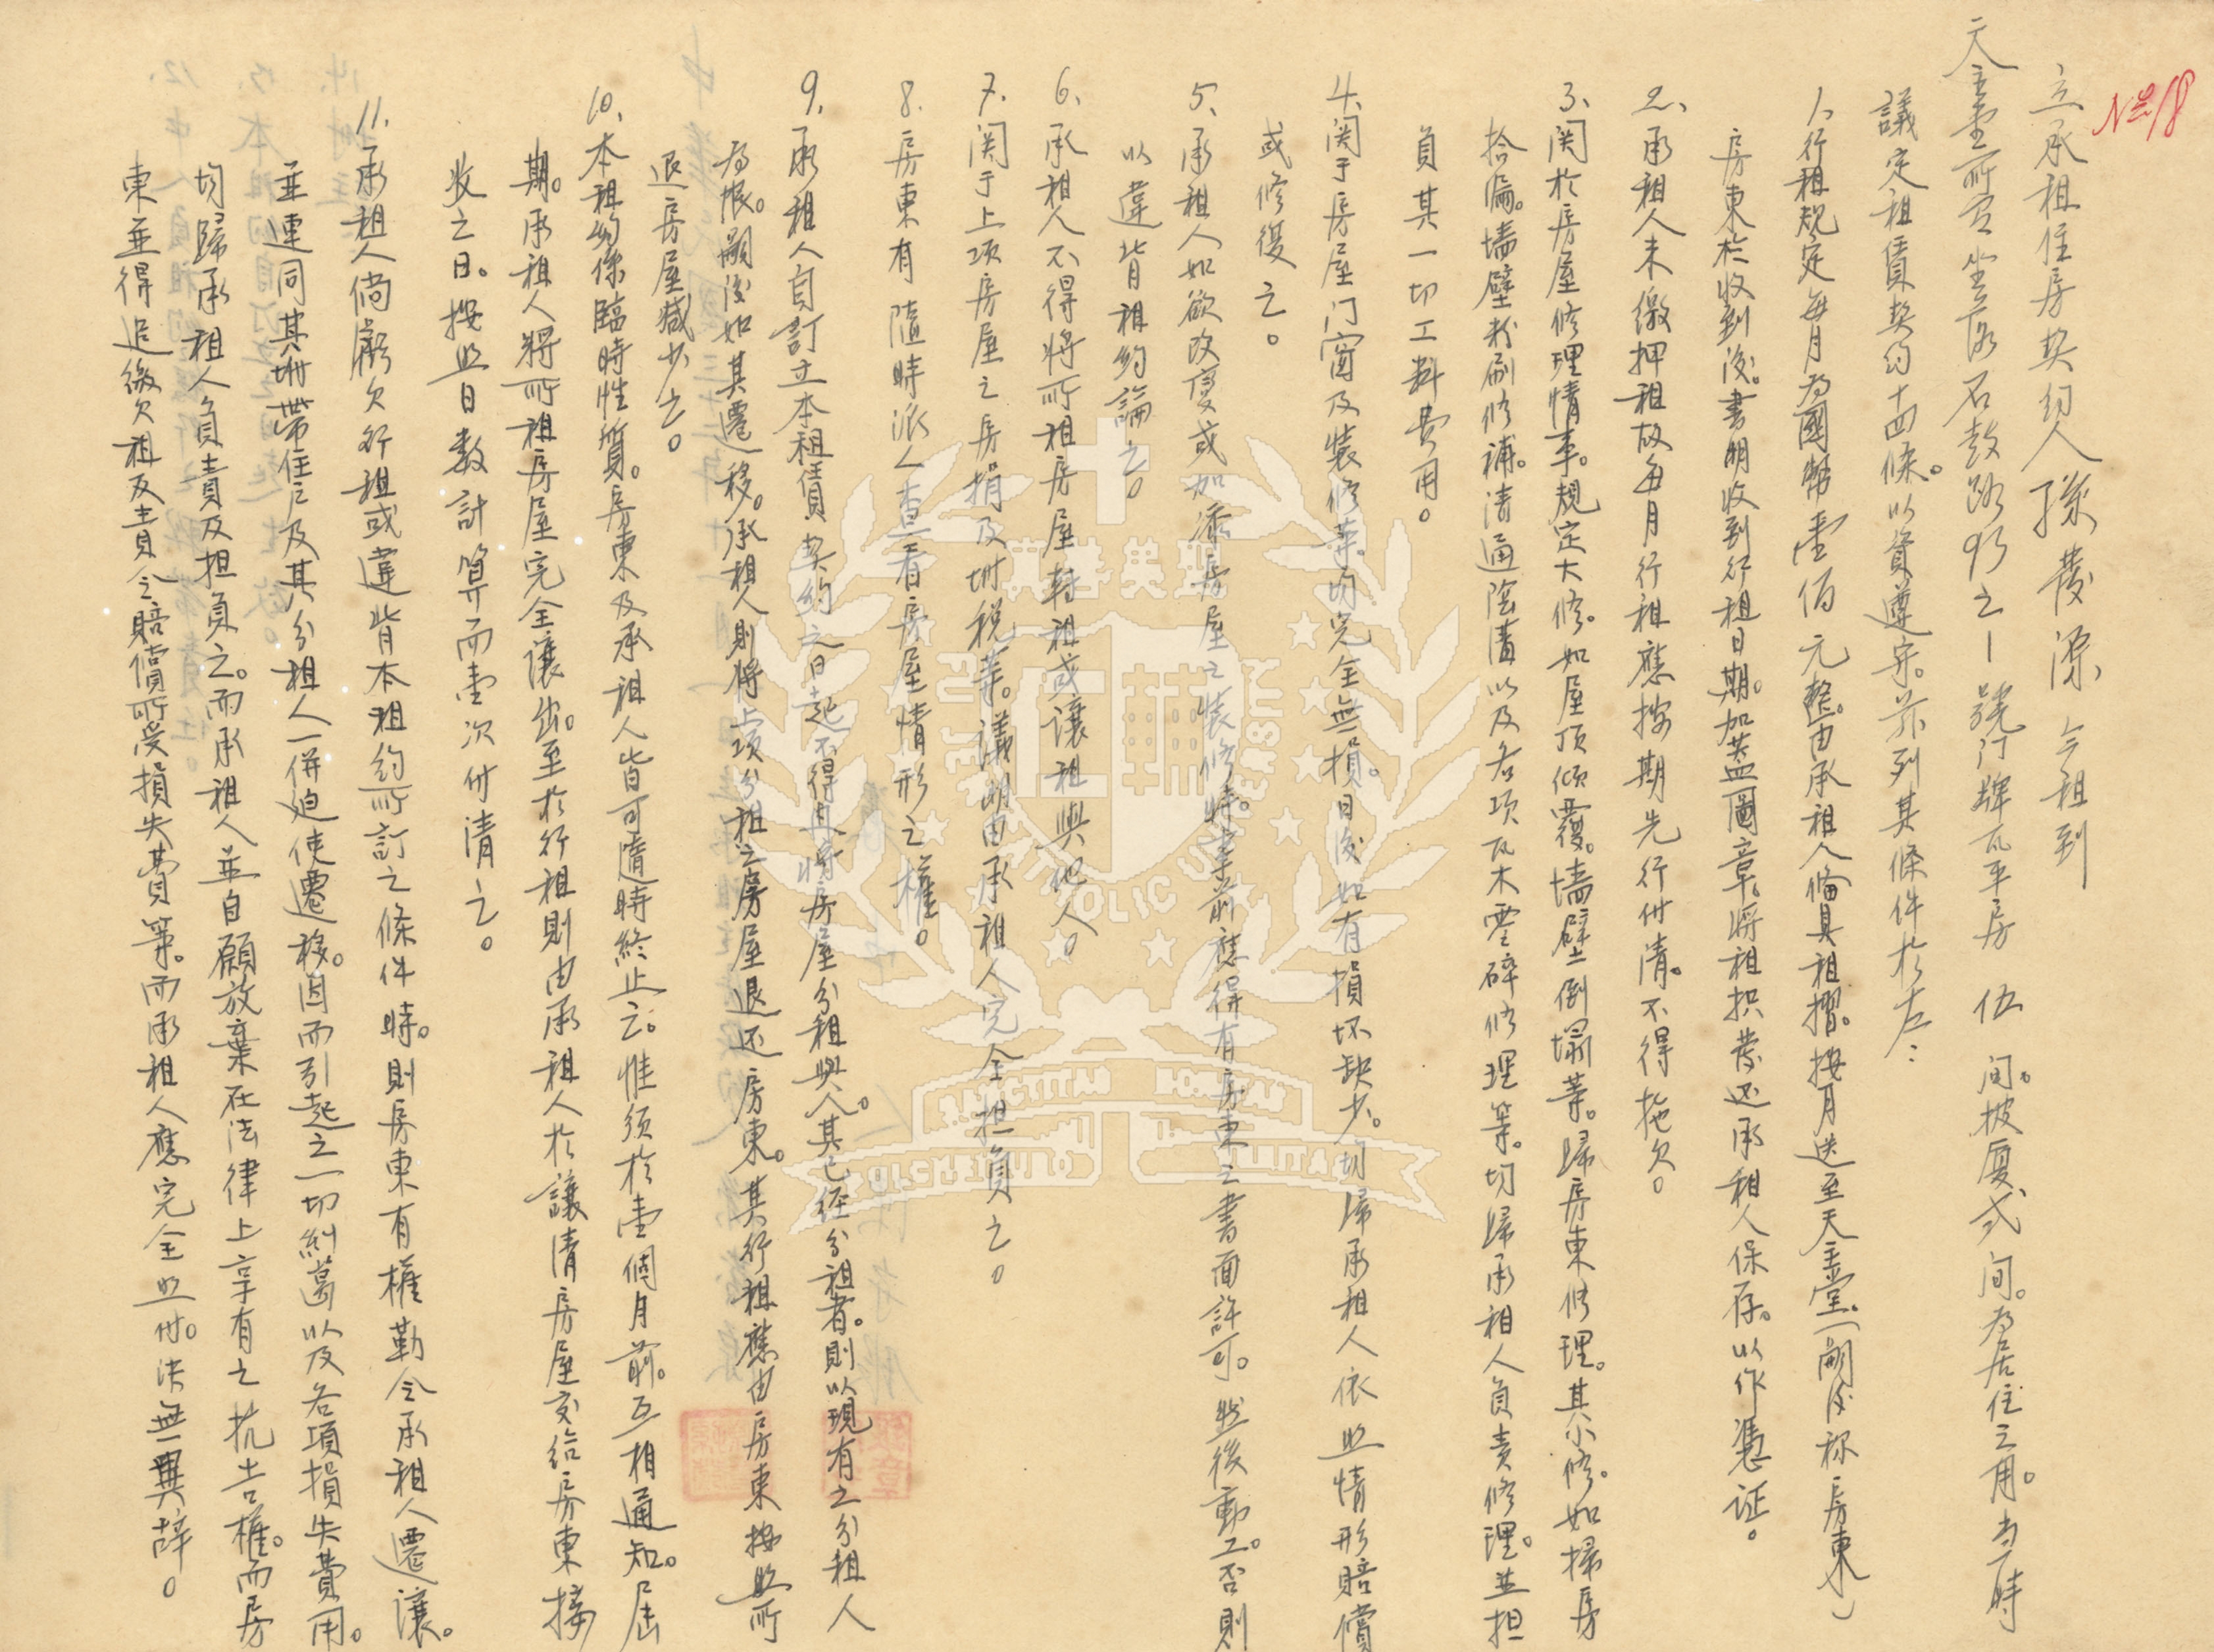 No 18
立承租住房契約人孫慶源 今租到
天主堂所有坐落石鼓路95之1號門牌瓦平房 伍 间。披厦弍间。為居住之用。当時
議定租賃契約十四條。以資遵守。茲列其條件於左：
1、行租規定每月為國幣壹佰元整。由承租人備具租摺。按月送至天主堂。(嗣後称房東)
房東於收到後。書明收到行租日期。加蓋圖章。將租摺發还承租人保存。以作憑证。
2、承租人未繳押租故每月行租應按期先行付清。不得拖欠。
3、関於房屋修理情事。規定大修。如屋顶倾覆。墙壁倒塌等。歸房東修理。其小修。如掃房
拾漏。墙壁粉刷修補。清通陰溝以及各项瓦木零碎修理等。均歸承租人負責修理。並担
負其一切工料費用。
4、関于房屋门窗及裝修等。均完全無損。日後如有損坏缺少。均歸承租人依照情形賠償
或修復之。
5、承租人如欲改變或加添房屋之裝修時。事前應得有房東之書面許可。然後動工。否則
以違背租約論之。
6、承租人不得將所租房屋轉租或讓租與他人。
7、関于上項房屋之房捐及坿税等。議明由承租人完全担負之。
8、房東有隨時派人查看房屋情形之權。
9、承租人自訂立本租賃契約之日起不得再將房屋分租與人。其已經分租者。則以現有之分租人
為限。嗣後如其遷移。承租人則將上項分租之房屋退还房東。其行租應由房東按照所
退房屋减少之。
10、本租約係臨時性質。房東及承租人皆可隨時終止之。惟须於壹個月前。互相通知。屆
期。承租人將所租房屋完全讓出。至於行租則由承租人於讓清房屋交給房東接
收之日。按照日数計算而壹次付清之。
11、承租人倘虧欠行租或違背本租約所訂之條件時。則房東有權勒令承租人遷讓。
並連同其坿帶住户及其分租人一併迫使遷移。因而引起之一切糾葛以及各項損失費用。
均歸承租人負責及担負之。而承租人並自願放棄在法律上享有之抗告權。而房
東並得追繳欠租及責令賠償所受損失費等。而承租人應完全照付。决無異辞。